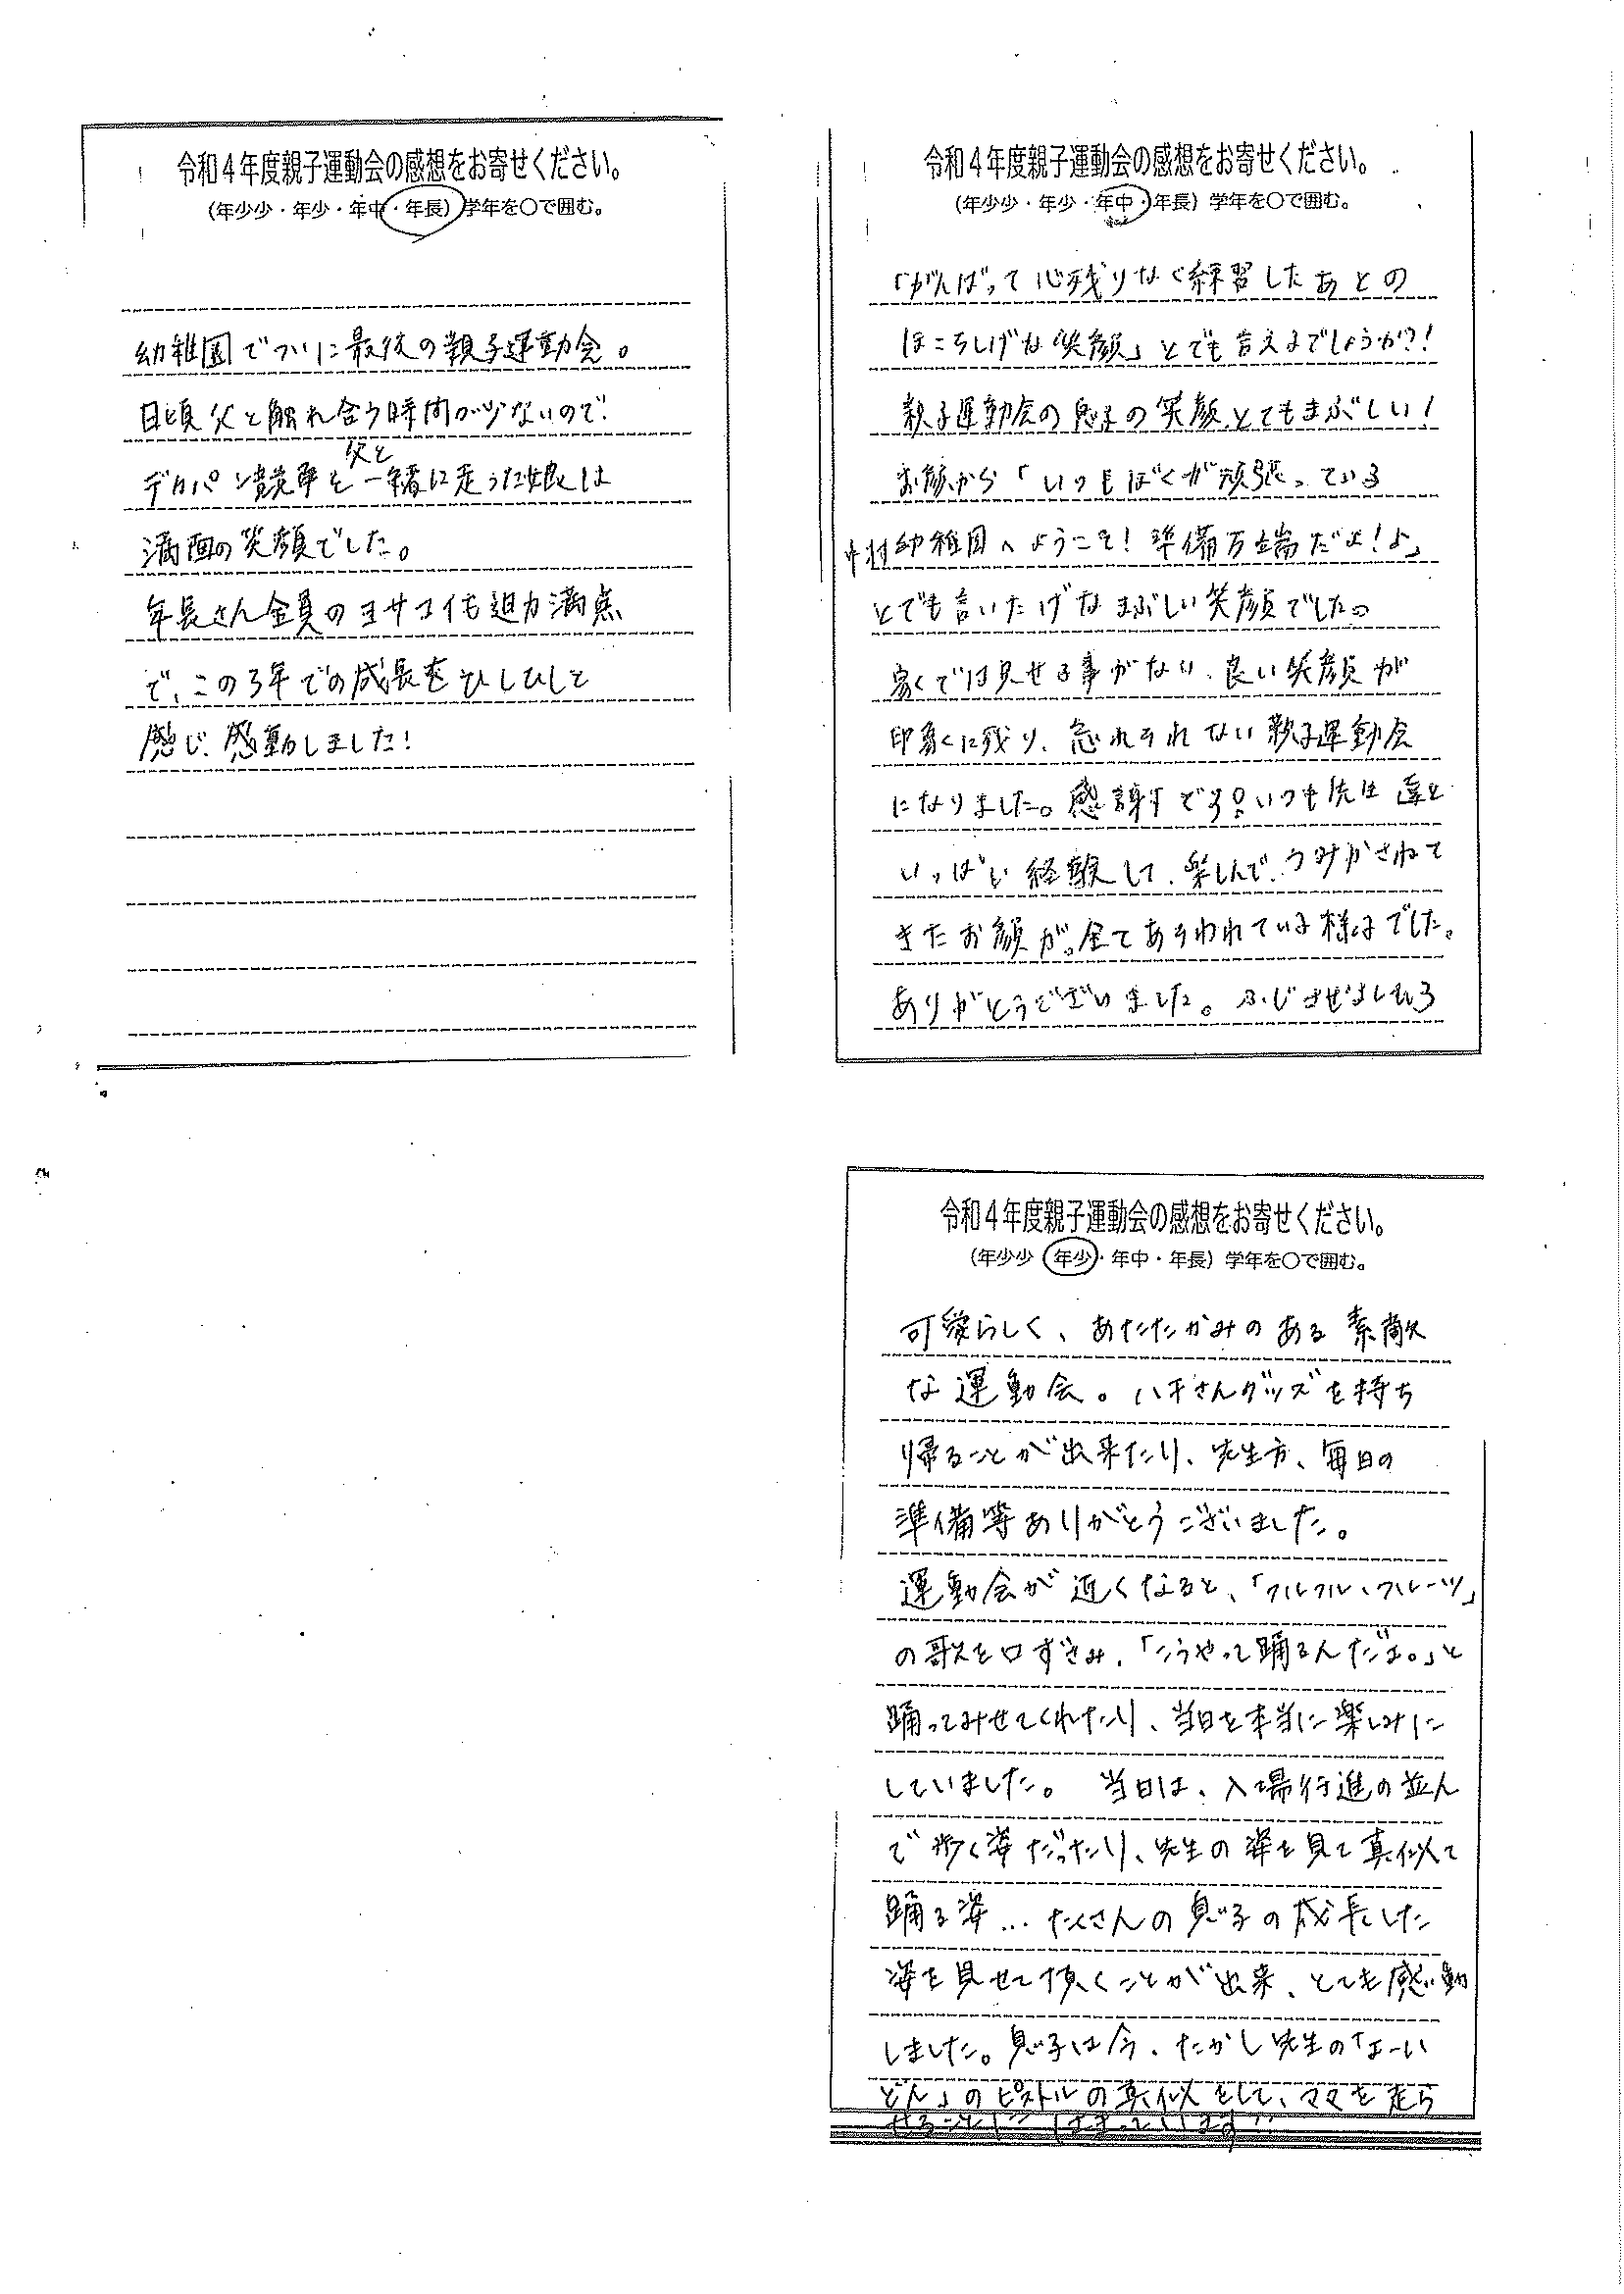 令和4年度親子運動会の感想をお寄せください。
(年少少・年少・年中・年長)学年を〇で囲む。
幼稚園でついに最後の親子運動会。
日頃父と触れ合う時間が少ないので
父と
デカパン競争を一緒に走った娘は
満面の笑顔でした。
年長さん全員のヨサコイも迫力満点
で、この3年での成長をひしひしと
感じ、感動しました!
令和4年度親子運動会の感想をお寄せください。
(年少少・年少・年中・年長)学年を〇で囲む。
「がんばって心残りなく練習したあとの
ほこらしげな笑顔」とでも言えるでしょうか?!
親子運動会の息子の笑顔、とてもまぶしい!
お顔から「いつもぼくが頑張っている
中村幼稚園へようこそ!準備万端だよ!」
とでも言いたげなまぶしい笑顔でした。
家では見せる事がない、良い笑顔が
印象に残り、忘れられない親子運動会
になりました。感謝です!いつも先生達と
いっぱい経験して、楽しんで、つみかさねて
きたお顔が、全てあらわれている様子でした。
ありがとうございました。
令和4年度親子運動会の感想をお寄せください。
(年少少・年少・年中・年長)学年を〇で囲む。
可愛らしく、あたたかみのある素敵
な運動会。ハチさんグッズを持ち
帰ることが出来たり、先生方、毎日の
準備等ありがとうございました。
運動会が近くなると、「フルフルフルーツ」
の歌を口ずさみ、「こうやって踊るんだよ。」と
踊ってみせてくれたり、当日を本当に楽しみに
していました。 当日は、入場行進の並ん
で歩く姿だったり、先生の姿を見て真似て
踊る姿…たくさんの息子の成長した
姿を見せて頂くことが出来、とても感動
しました。息子は今、たかし先生の「よーい
どん」のピストルの真似をして、ママを走ら
せることにはまっています!!